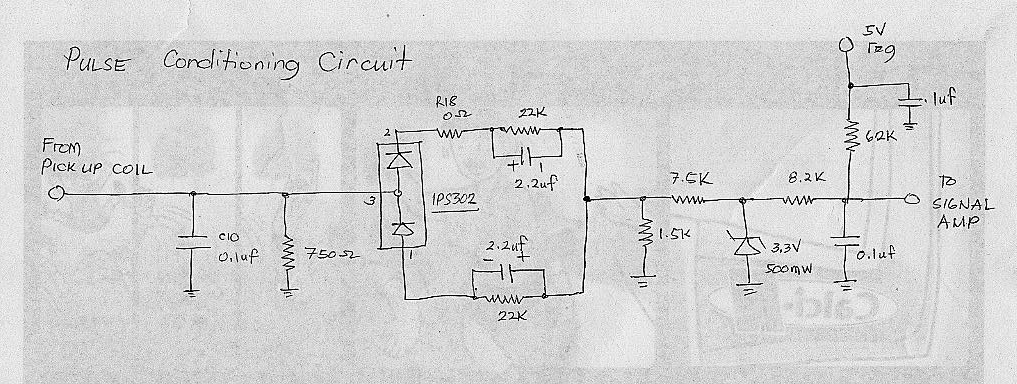 PULSE Conditioning Circuit
5V
reg
.1uf
62K
R18
0Ω
22K
2
+
2.2uf
FROM
PICK UP COIL
3
1PS302
7.5K
8.2K
TO
SIGNAL
AMP
C10
0.1uf
750Ω
1
2.2uf
- +
22K
1.5K
3.3V
500mW
0.1uf
Calci-